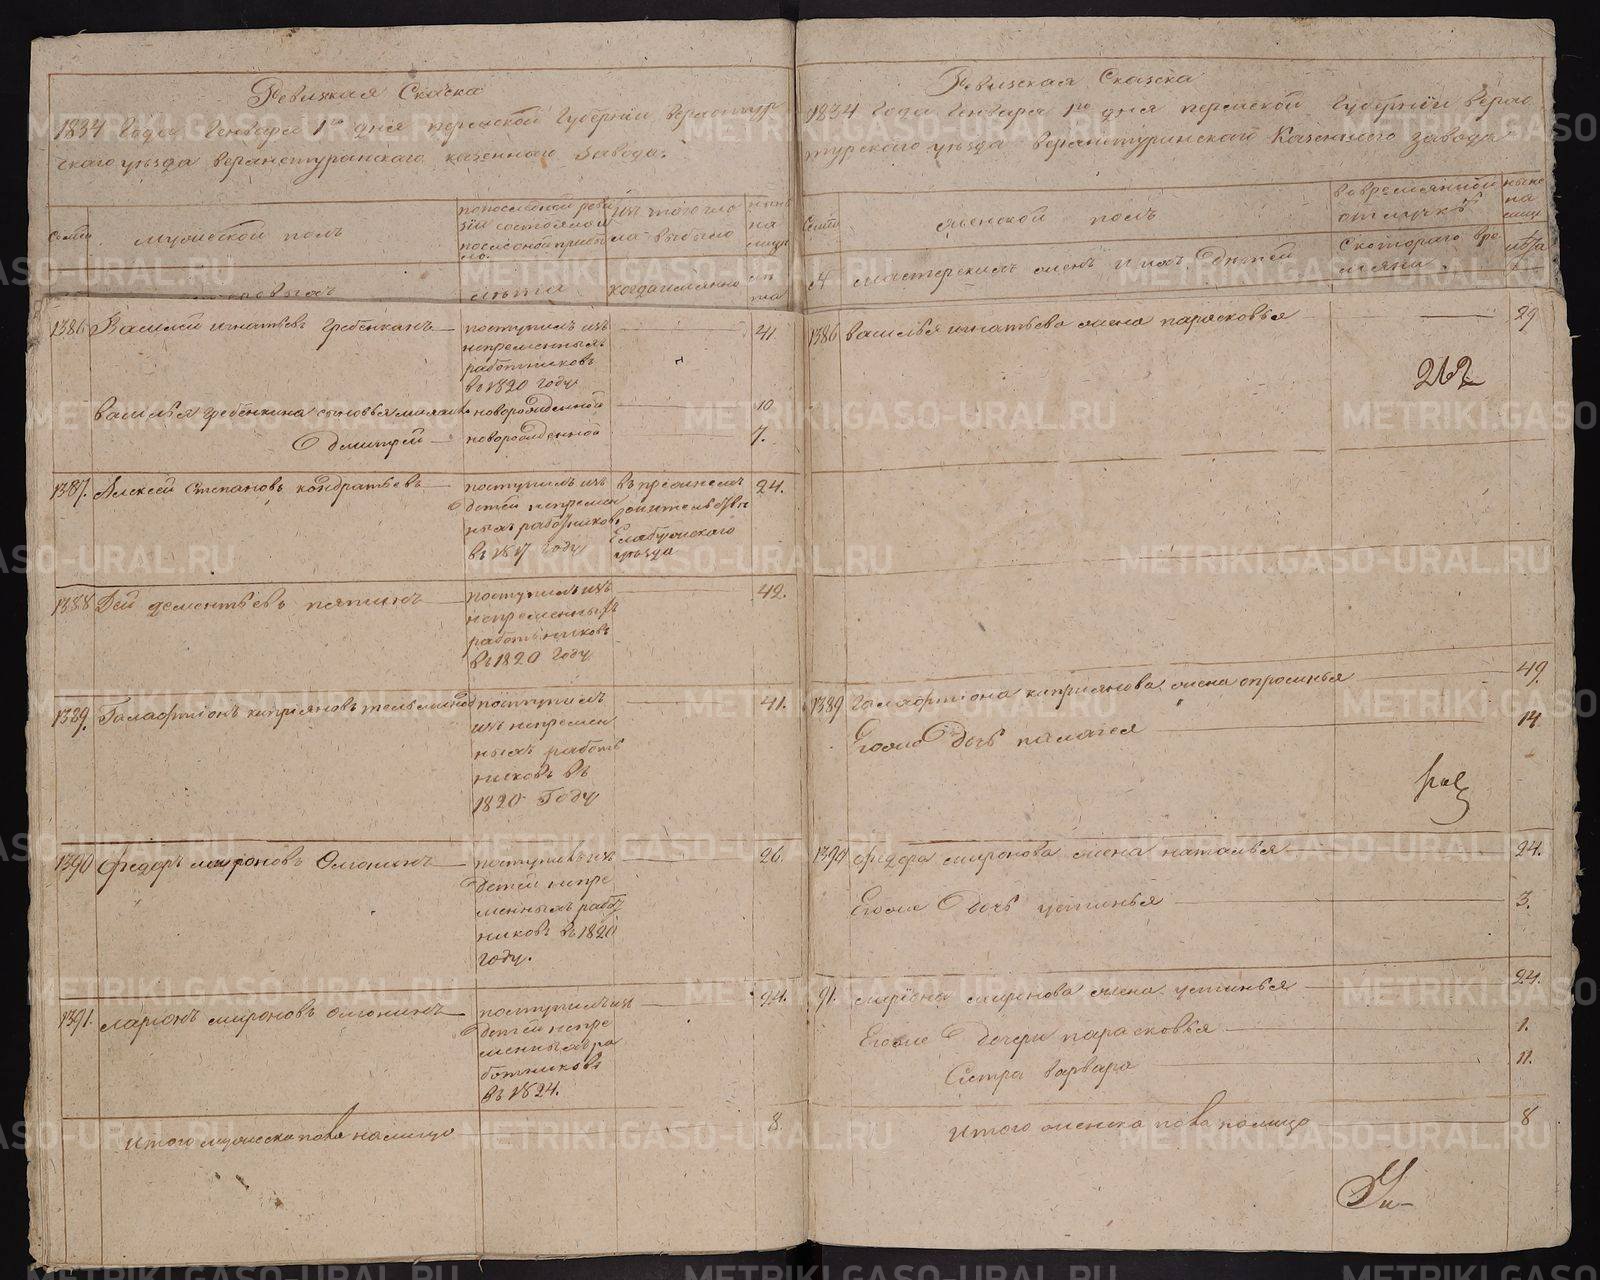 Ревизская Скаска
1834 года Генваря 1го дня пермской Губернии верхотур
скаго уезда верхнетуринскаго казенного завода.
Семьи
мужеской полъ
попоследней реви
зiи состояло и
после оной прибы
ло.
изъ того чис
ла выбыло
ныне
на
лицо
лета
когда имянно
ле
та
1386 Василей игнатьевъ Гребенкинъ поступилъ изъ 41
непременныхъ
работниковъ
въ 1820 году
василья гребенкина сыновья новорожденной 10
Дмитрей новорожденной 7.
1387. Алексей Степановъ кондратьевъ поступилъ изъ 24.
детей непремен
ныхъ работниковъ
въ 1817 году
Елабужскаго
уезда
1388 дементьевъ пятинъ поступилъ изъ 42.
непременныхъ
работниковъ
въ 1820 году
1389. Галафтионъ киприяновъ поступилъ 41.
изъ непремен
ныхъ работ
никовъ въ
1820 Году
1390 федоръ мироновъ поступилъ изъ 26.
детей непре
менныхъ работ
никовъ въ 1820
году.
1391. ларiонъ мироновъ поступилъ изъ 24.
детей непре
менныхъ ра
ботниковъ
въ 1824.
итого мужеска пола налицо 8
Ревизская Скаска
1834 Года Генваря 1го дня пермской Губернiи верхо
турского уезда верхнетуринской Казенного завода
Семьи
женской полъ
во временной
отлучке
ныне
на
лицо
мастерскихъ женъ и ихъ детей
с котораго вре
мяни.
лета
1386 василья игнатьева жена парасковья 29
262
1389 Галафтиона киприянова жена опросинья 49.
Егоже дочь палагея 14
1390 федора миронова жена наталья 24.
Егоже дочь устинья 3.
91. ларiона миронова жена устинья 24.
Егоже дочери парасковья 1.
Сестра варвара 11.
итого женска пола налицо 8
METRIKI.GASO-URAL.RU